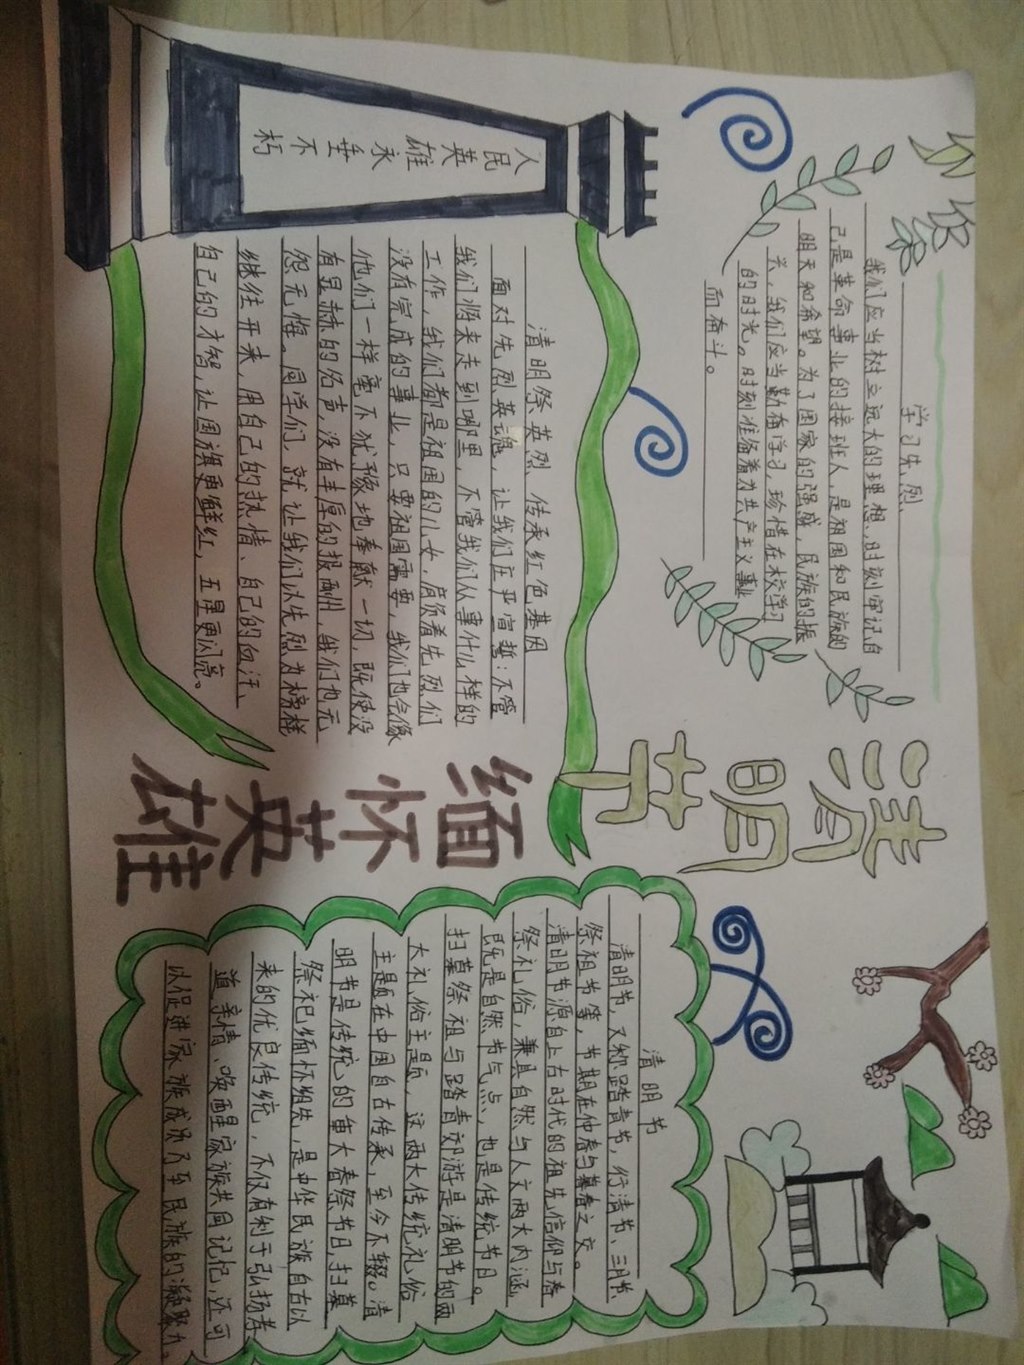 学习先烈
我们应当树立远大的理想,时刻牢记自
己是革命事业的接班人,是祖国和民族的
明天和希望。为了国家的强盛,民族的振
兴,我们应当勤奋学习,珍惜在校学习
的时光。时刻准备着为共产主义事业
而奋斗。
清明节
缅怀英雄
人民英雄永垂不朽
清明祭英烈 传承红色基因
面对先烈英魂,让我们庄严宣誓:不管
我们将来走到哪里,不管我们从事什么样的
工作,我们都是祖国的儿女,肩负着先烈们
没有完成的事业,只要祖国需要,我们也会像
他们一样毫不犹豫地奉献一切,既使没
有显赫的名声,没有丰厚的报酬,我们也无
怨无悔。同学们,就让我们以先烈为榜样
继往开来,用自己的热情、自己的血汗、
自己的才智,让国旗更鲜红,五星更闪亮。
清明节
清明节,又称踏青节,行清节、三月节
祭祖节等,节期在仲春与暮春之交。
清明节源自上古时代的祖先信仰与春
祭礼俗,兼具自然与人文两大内涵
既是自然节气点,也是传统节日。
扫墓祭祖与踏青郊游是清明节的两
大礼俗主题,这两大传统礼俗
主题在中国自古传承,至今不辍。清
明节是传统的重大春祭节日,扫墓
祭祀缅怀祖先,是中华民族自古以
来的优良传统,不仅有利于弘扬孝
道亲情、唤醒家族共同记忆,还可
以促进家族成员乃至民族的凝聚力。